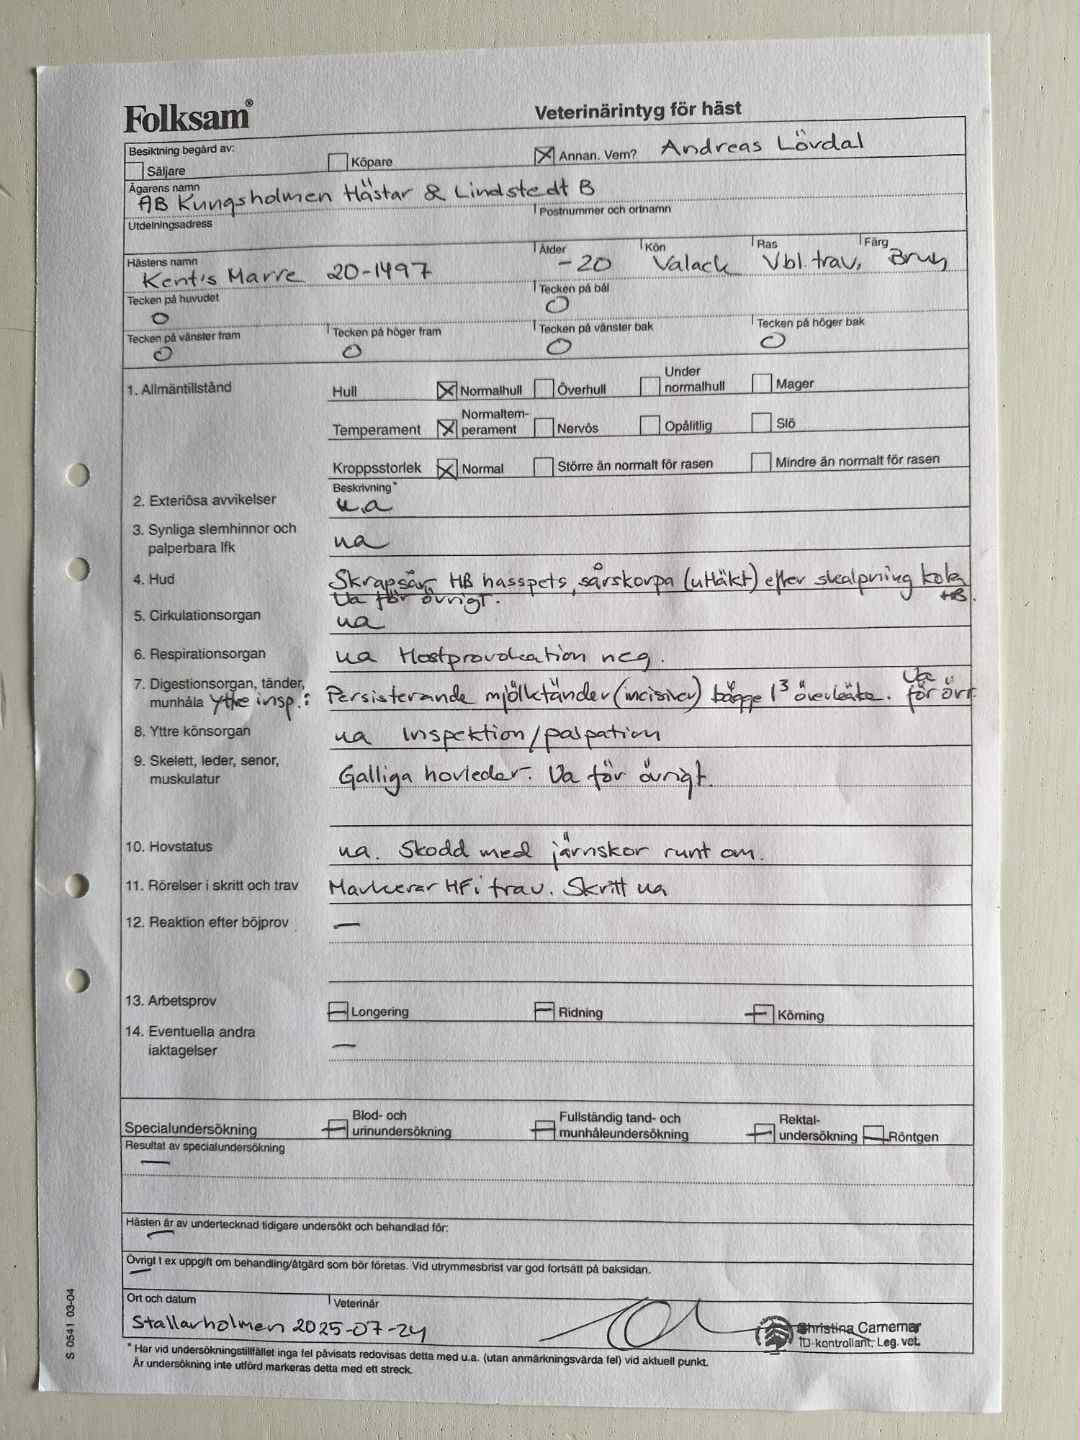 Folksam®
Veterinärintyg för häst
Besiktning begärd av:
Säljare
Köpare
Annan. Vem? Andreas Lövdal
Ägarens namn
AB Kungsholmen Hästar & Lindstedt B
Utdelningsadress
Postnummer och ortnamn
Hästens namn
Ålder
Kön
Ras
Färg
Kent's Marre 20-1497
-20
Valack
Vbl. trav,
Brun
Tecken på huvudet
Tecken på bål
O
O
Tecken på vänster fram
Tecken på höger fram
Tecken på vänster bak
Tecken på höger bak
O
O
O
O
1. Allmäntillstånd
Hull
Normalhull
Överhull
Under normalhull
Mager
Temperament
Normaltem-
perament
Nervös
Opålitlig
Slö
Kroppsstorlek
Normal
Större än normalt för rasen
Mindre än normalt för rasen
Beskrivning*
2. Exteriösa avvikelser
u.a
3. Synliga slemhinnor och
palperbara lfk
ua
4. Hud
Skrapsår HB hasspets, sårskorpa (utläkt) efter skalpning kota
HB.
Ua för övrigt.
5. Cirkulationsorgan
ua
6. Respirationsorgan
ua Hostprovokation neg.
7. Digestionsorgan, tänder,
munhåla Yttre insp.:
Persisterande mjölktänder (incisiver) bägge I3 överkäke. Ua
för övr.
8. Yttre könsorgan
ua Inspektion/palpation
9. Skelett, leder, senor,
muskulatur
Galliga hovleder. Ua för övrigt.
10. Hovstatus
ua. Skodd med järnskor runt om.
11. Rörelser i skritt och trav
Markerar HF i trav. Skritt ua
12. Reaktion efter böjprov
—
13. Arbetsprov
Longering
Ridning
Körning
14. Eventuella andra
iaktagelser
—
Specialundersökning
Blod- och
urinundersökning
Fullständig tand- och
munhåleundersökning
Rektal-
undersökning
Röntgen
Resultat av specialundersökning
—
Hästen är av undertecknad tidigare undersökt och behandlad för:
—
Övrigt t ex uppgift om behandling/åtgärd som bör företas. Vid utrymmesbrist var god fortsätt på baksidan.
—
Ort och datum
Veterinär
Stallarholmen 2025-07-24
Christina Carnemar
ID-kontrollant, Leg. vet.
* Har vid undersökningstillfället inga fel påvisats redovisas detta med u.a. (utan anmärkningsvärda fel) vid aktuell punkt.
Är undersökning inte utförd markeras detta med ett streck.
S 0541 03-04